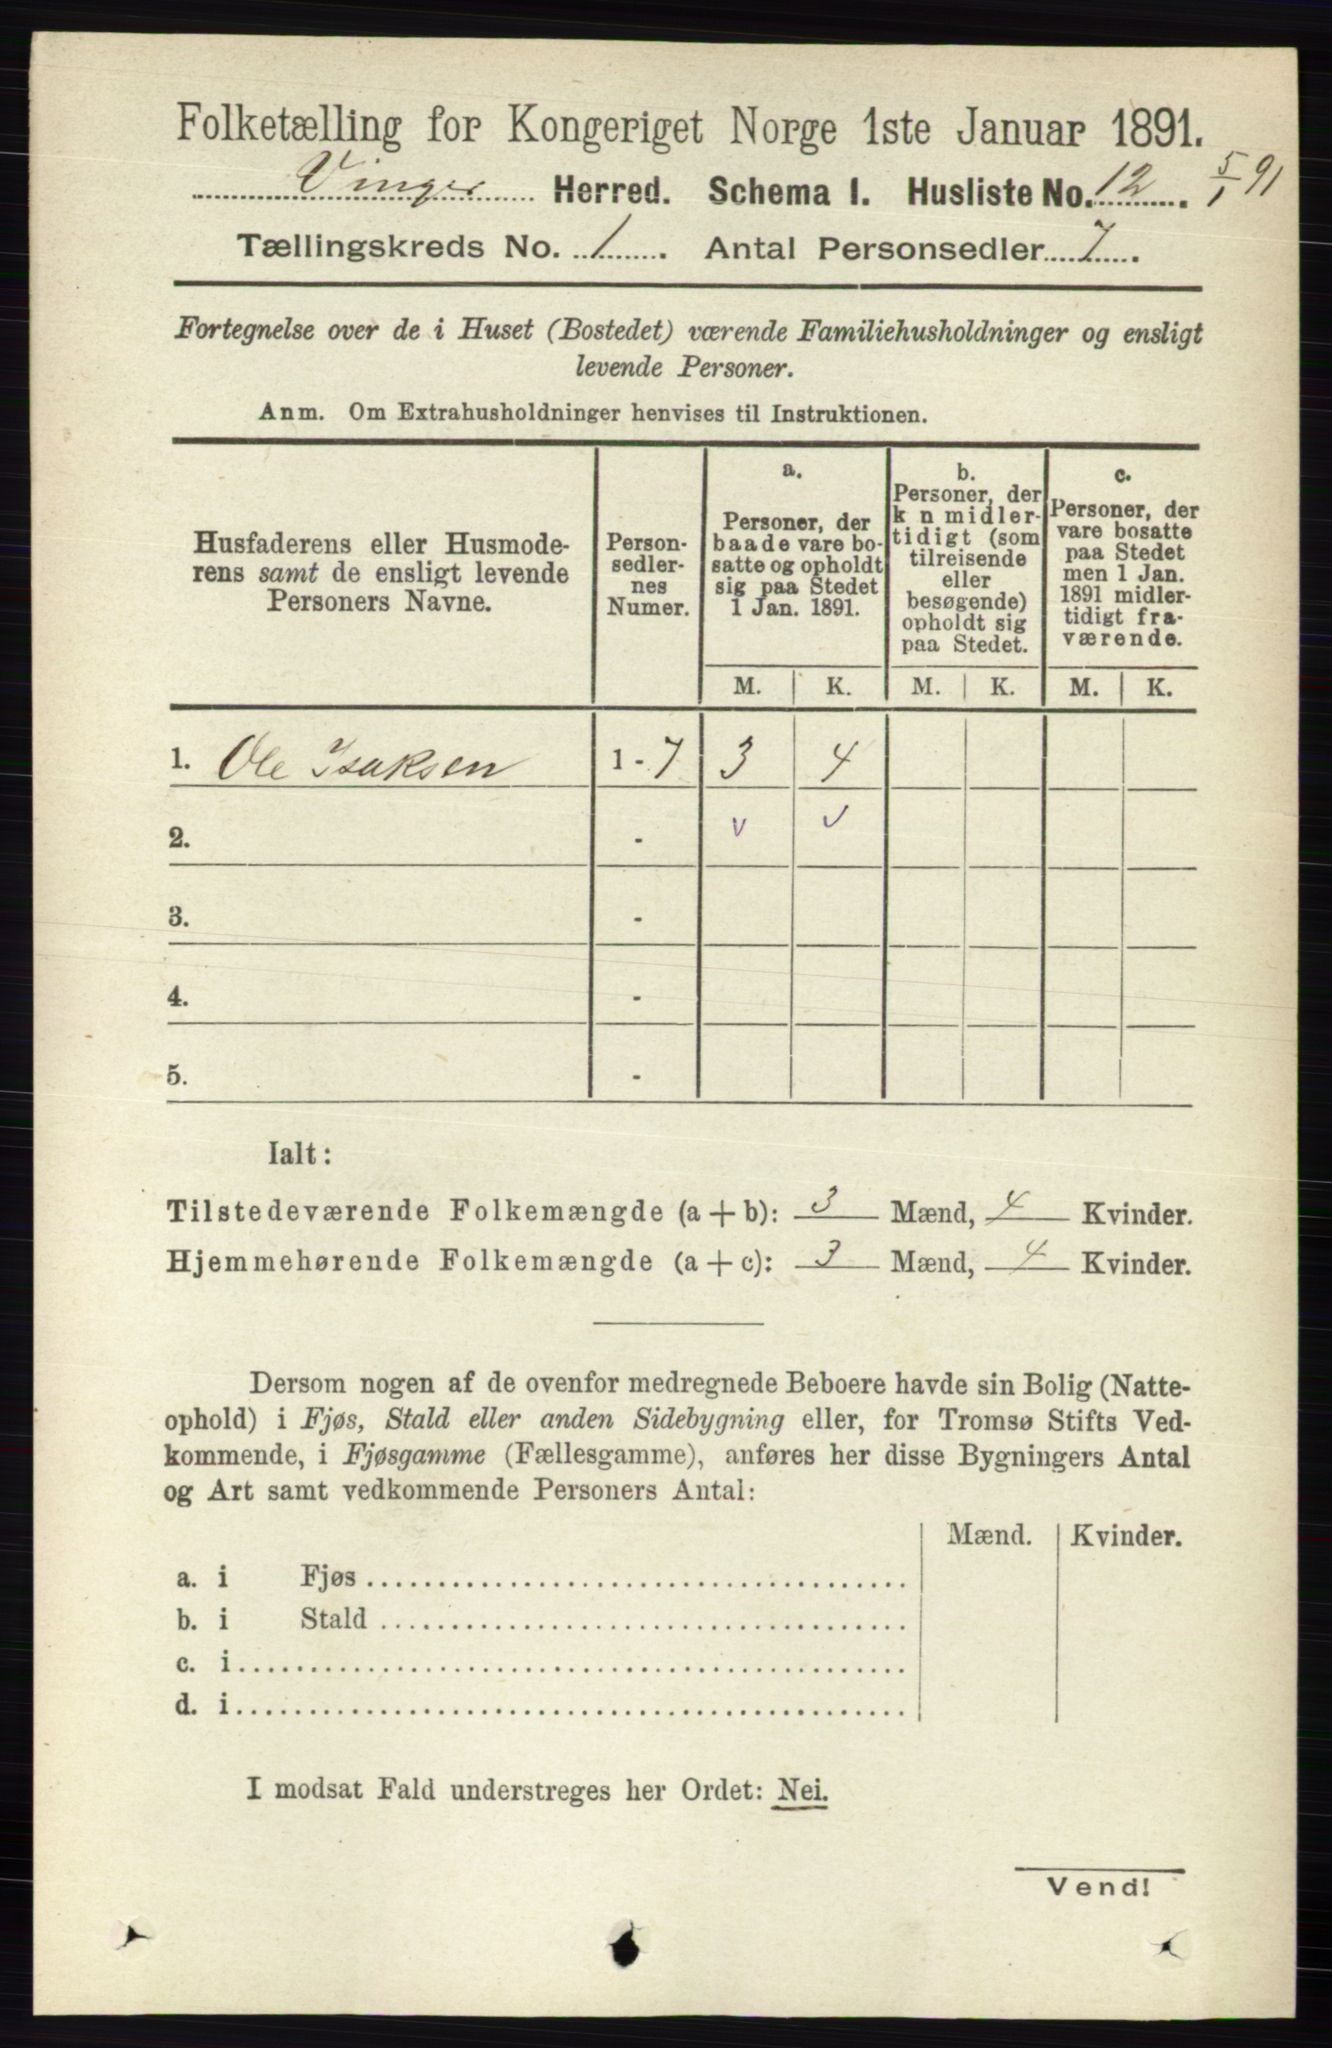 Folketælling for Kongeriget Norge 1ste Januar 1891.
Vinger Herred. Schema I. Husliste No. 12. 5/1 91
Tællingskreds No. 1. Antal Personsedler 7.
Fortegnelse over de i Huset (Bostedet) værende Familiehusholdninger og ensligt
levende Personer.
Anm. Om Extrahusholdninger henvises til Instruktionen.
Husfaderens eller Husmode-
rens samt de ensligt levende
Personers Navne.
Person-
sedler-
nes
Numer.
a.
Personer, der
baade vare bo-
satte og opholdt
sig paa Stedet
1 Jan. 1891.
b.
Personer, der
k n midler-
tidigt (som
tilreisende
eller
besøgende)
opholdt sig
paa Stedet.
c.
Personer, der
vare bosatte
paa Stedet
men 1 Jan.
1891 midler-
tidigt fra-
værende.
M. K. M. K. M. K.
1. Ole Isaksen 1 - 7 3 4
2. - v v
3. -
4. -
5. -
Ialt:
Tilstedeværende Folkemængde (a + b): 3 Mænd, 4 Kvinder.
Hjemmehørende Folkemængde (a + c): 3 Mænd, 4 Kvinder.
Dersom nogen af de ovenfor medregnede Beboere havde sin Bolig (Natte-
ophold) i Fjøs, Stald eller anden Sidebygning eller, for Tromsø Stifts Ved-
kommende, i Fjøsgamme (Fællesgamme), anføres her disse Bygningers Antal
og Art samt vedkommende Personers Antal:
Mænd. Kvinder.
a. i Fjøs
b. i Stald
c. i
d. i
I modsat Fald understreges her Ordet: Nei.
Vend!